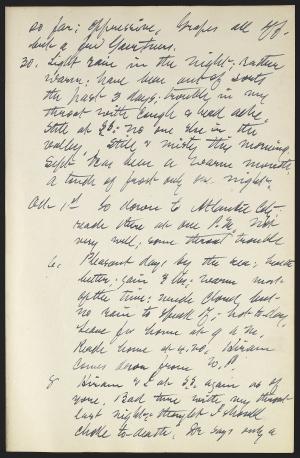 so far; Oppressive, Grapes all off,
but a few Gaertners.
30. Light rain in the night. Rather
warm: have been out of sorts
the past 3 days; trouble in my
throat with cough & head ache,
Still at : no one else in the
valley. Still & misty this morning.
Sept. has been a warm month:
a touch of frost only one night.
Oct. 1st Go down to Atlantic City:
reach there at one P.M. Not
very well, some throat trouble
6. Pleasant days by the sea: health
better: gain 3 lbs: warm most
of the time: much cloud, but
no rain to speak of; hot to-day,
Leave for home at 9 a.m.
Reach home at 4.20, Hiram
comes down from W.P.
8 Hiram & I at again as of
yore. Bad time with my throat
last night: thought I should
choke to death; Dr. says only a